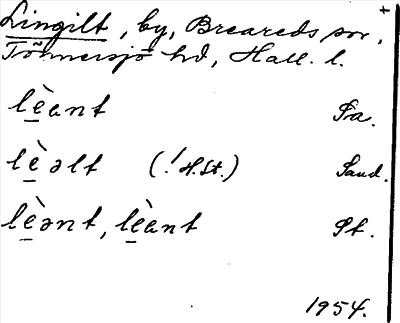 Lingilt, by, Breareds sn, +
Tönnersjö hd, Hall. l.
lèant Pa.
lèəlt (! H.St.) Sand.
lèənt, lèant St.
1954.